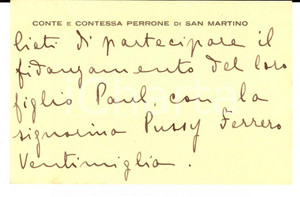 CONTE E CONTESSA PERRONE DI SAN MARTINO
lieti di partecipare il
fidanzamento del loro
figlio Paul, con la
signorina Pussy Ferrero
Ventimiglia.